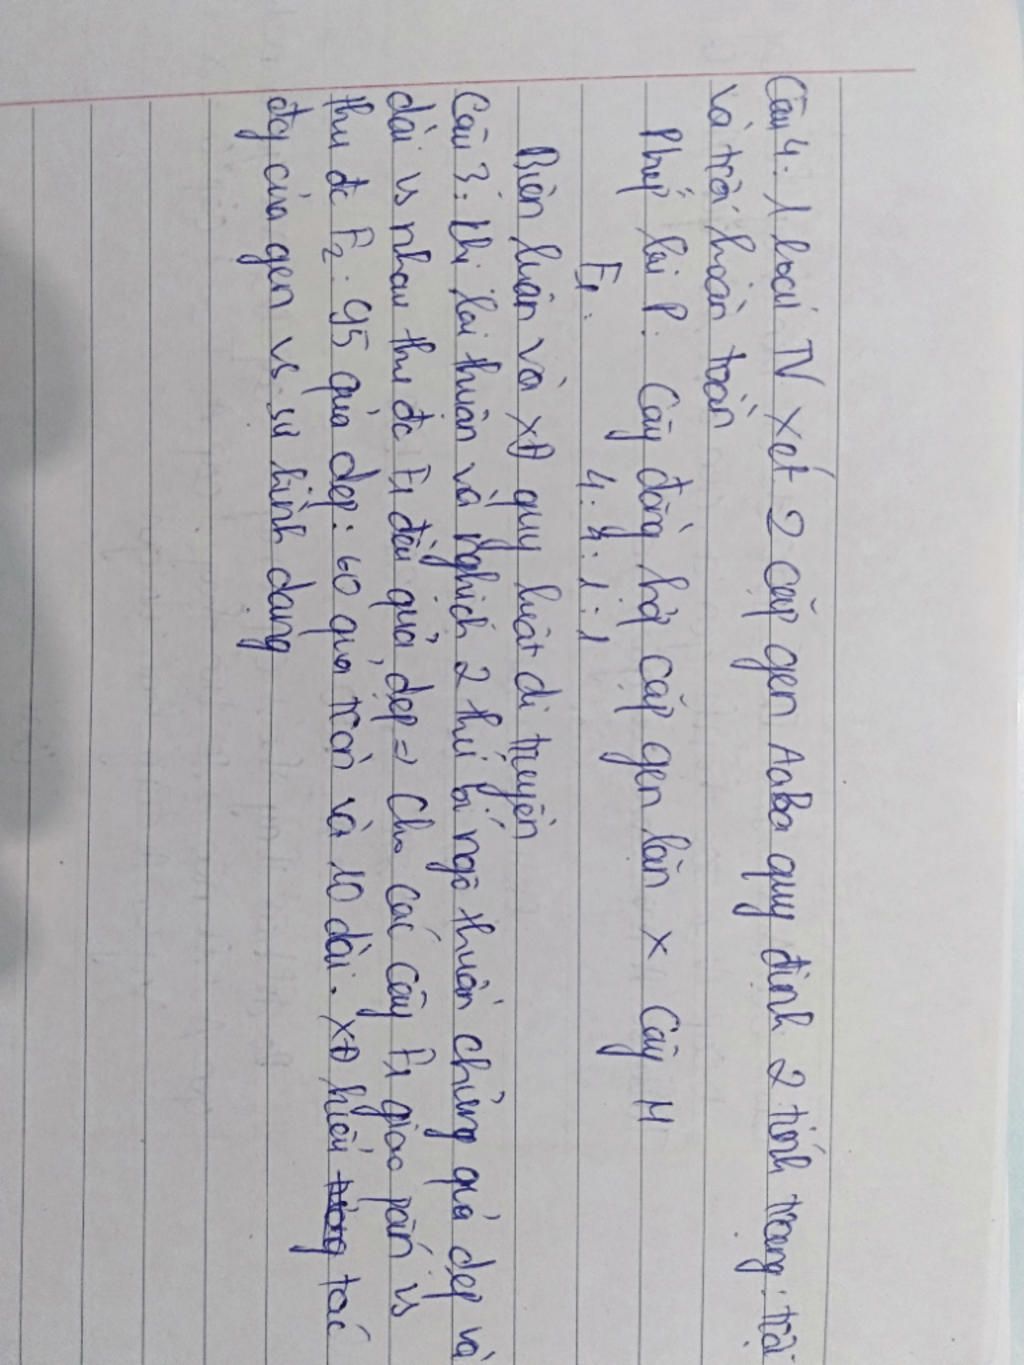 Câu 4: 1 loài TV xét 2 cặp gen AaBa quy định 2 tính trạng: trội
và trội hoàn toàn
Phép lai P: Cây đồng hợp cặp gen lặn x Cây M
F1: 4:4:1:1
Biện luận và XĐ quy luật di truyền
Câu 3: Khi lai thuận và nghịch 2 thứ bí ngô thuần chủng quả dẹp và
dài vs nhau thu đc F1 đều quả dẹp => Cho các cây F1 giao phấn vs
thu đc F2: 95 quả dẹp: 60 quả tròn và 10 dài. XĐ kiểu tác
độg của gen vs sự hình dạng